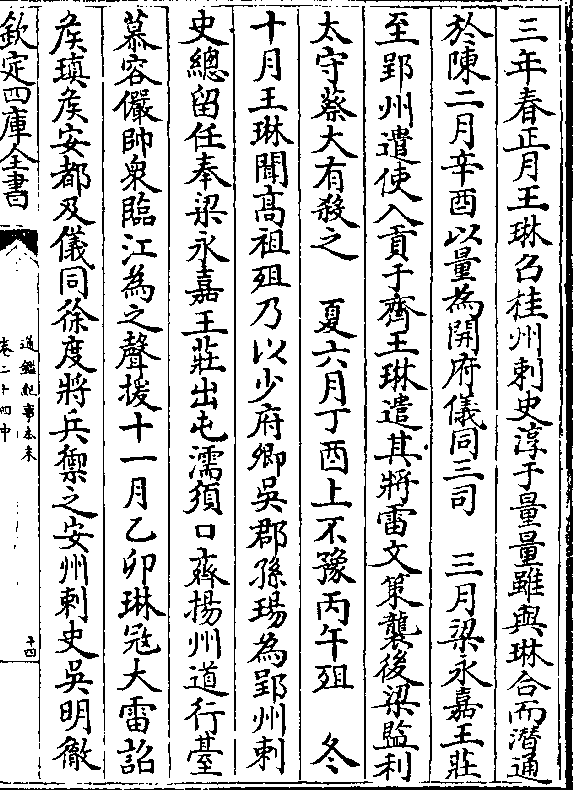 三年春正月王琳召桂州刺史淳于量量雖與琳合而潛通
於陳二月辛酉以量為開府儀同三司　三月梁永嘉王莊
至郢州遣使入貢于齊王琳遣其將雷文策襲後梁監利
太守蔡大有殺之　夏六月丁酉上不豫丙午殂　冬
十月王琳聞高祖殂乃以少府卿吳郡孫瑒為郢州刺
史總留任奉梁永嘉王莊出屯濡須口齊揚州道行臺
慕容儼帥衆臨江為之聲援十一月乙卯琳寇大雷詔
侯瑱侯安都及儀同徐度將兵禦之安州刺史吳明徹
欽定四庫全書
通鑑紀事本末
卷二十四中
十四